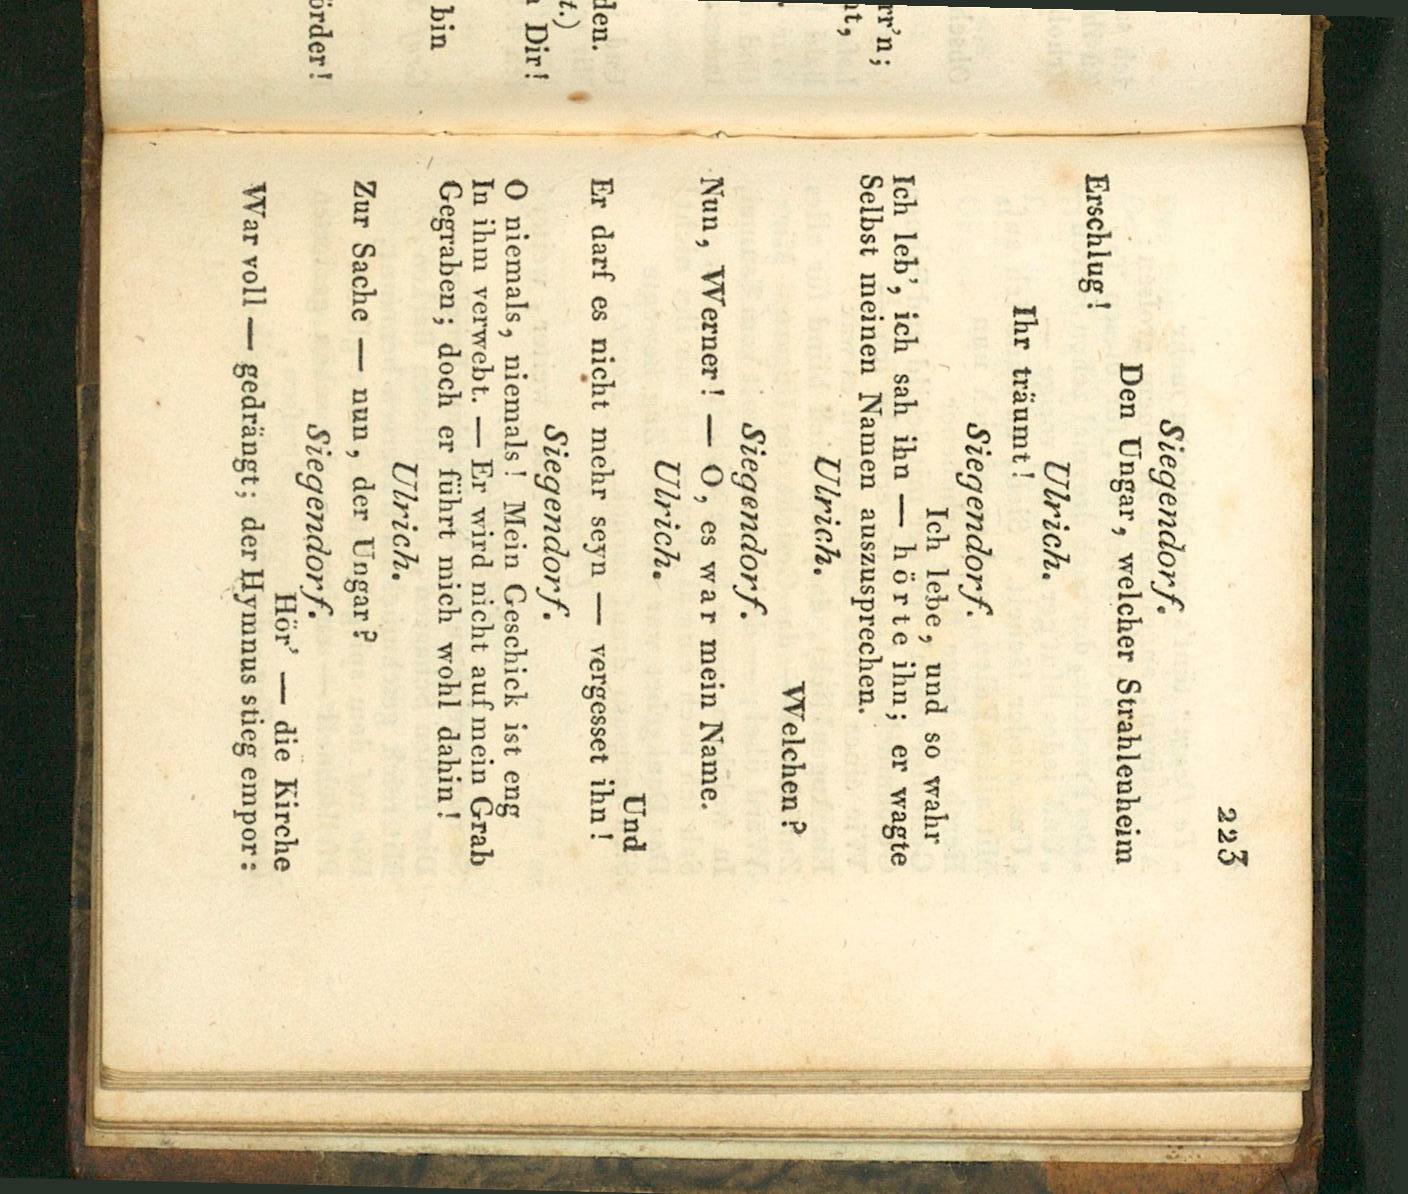 223
Siegendorf.
Den Ungar, welcher Strahlenheim
Erschlug!
Ulrich.
Ihr träumt!
Siegendorf.
Ich lebe, und so wahr
Ich leb', ich sah ihn — hörte ihn; er wagte
Selbst meinen Namen auszusprechen.
Ulrich.
Welchen?
Siegendorf.
Nun, Werner! — O, es war mein Name.
Ulrich.
Und
Er darf es nicht mehr seyn — vergesset ihn!
Siegendorf.
O niemals, niemals! Mein Geschick ist eng
In ihm verwebt. — Er wird nicht auf mein Grab
Gegraben; doch er führt mich wohl dahin!
Ulrich.
Zur Sache — nun, der Ungar?
Siegendorf.
Hör' — die Kirche
War voll — gedrängt; der Hymnus stieg empor:
rr'n;
nt,
den.
t.)
Dir!
bin
örder!